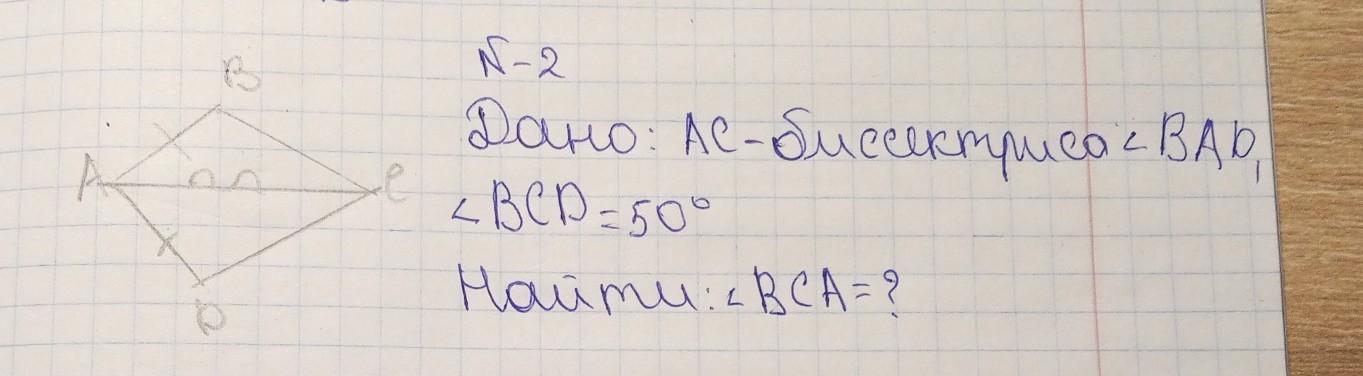 B
A
C
D
N-2
Дано: AC-биссектриса ∠BAD,
∠BCD=50°
Найти: ∠BCA=?